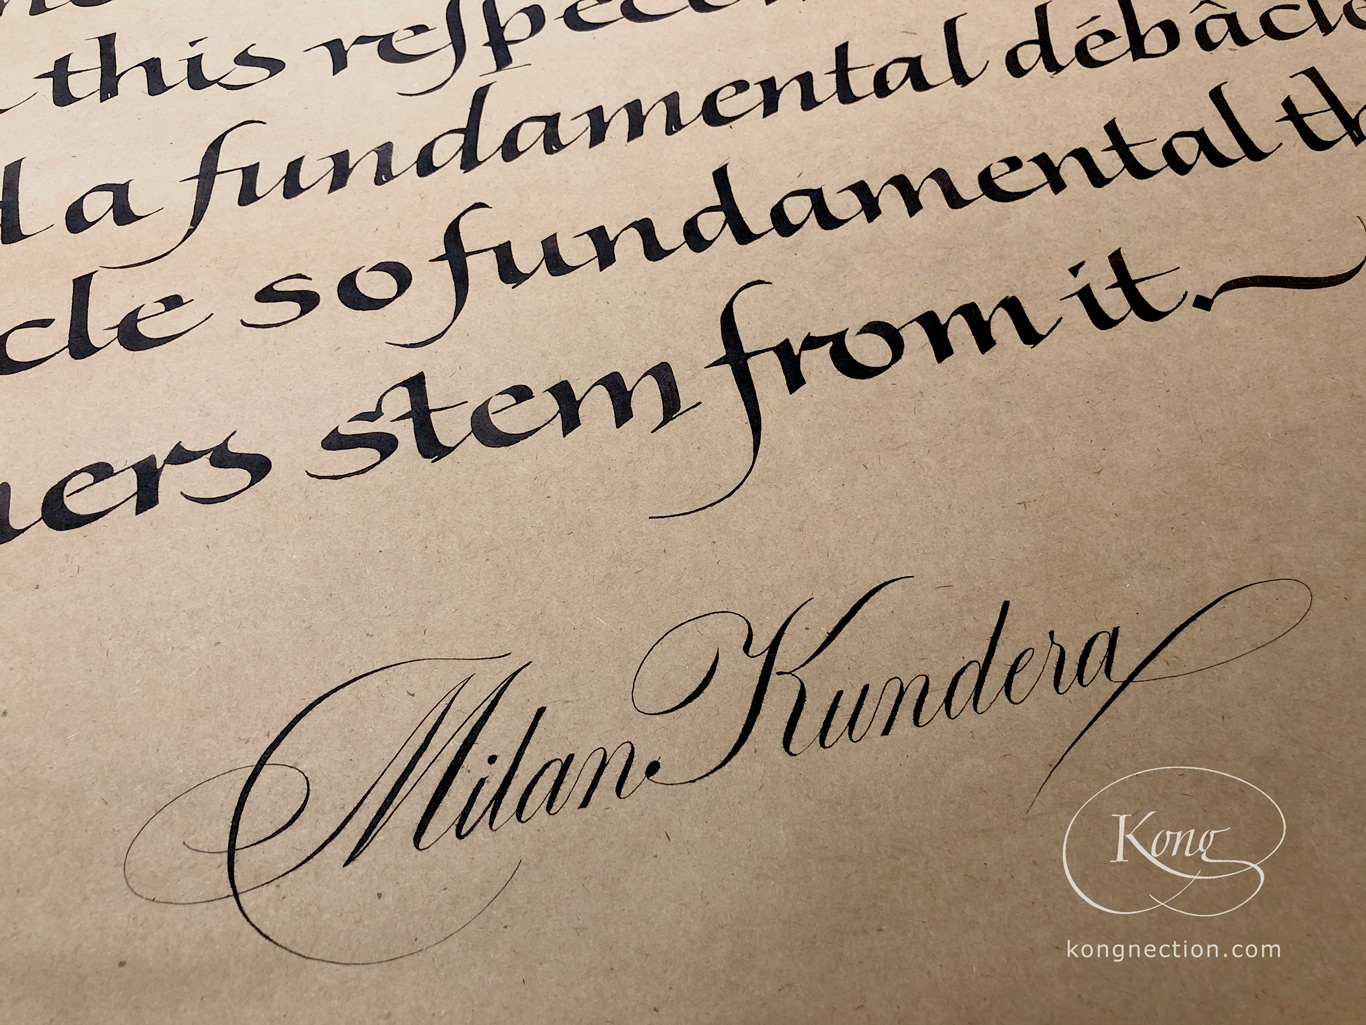 this respec
a fundamental débâcle
cle so fundamental th
ers stem from it.
Milan Kundera
Kong
kongnection.com